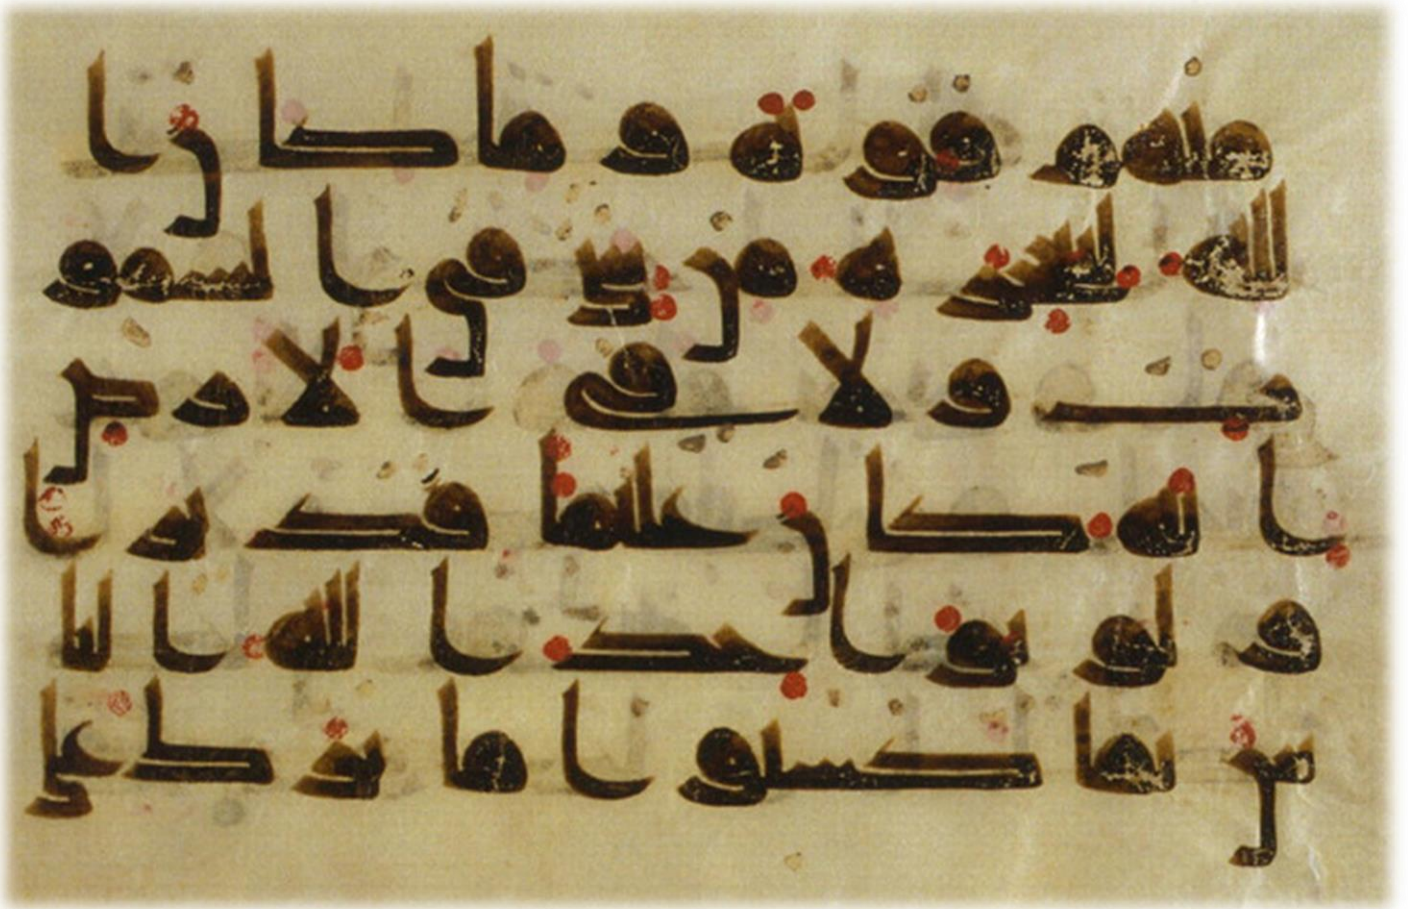 منهم قوة وما كان ا
لله ليعجزه من شي في السمو
ت ولا في الارض
انه كان عليما قديرا
ولو يواخذ الله النا
س بما كسبوا ما ترك على